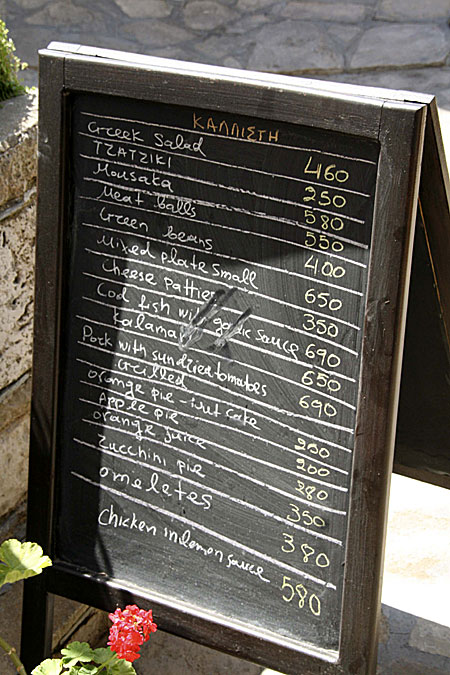 ΚΑΛΛΙΣΤΗ
Greek Salad 460
TZATZIKI 250
Mousaka 580
Meat balls 550
Green beans 400
Mixed plate small 650
Cheese patties 350
Cod fish with garlic sauce 690
Kalamari 650
Pork with sundried tomatoes 690
Grilled
orange pie - nut cake 250
Apple pie 200
orange juice 280
Zucchini pie 350
omeletes 380
chicken in lemon sauce 580